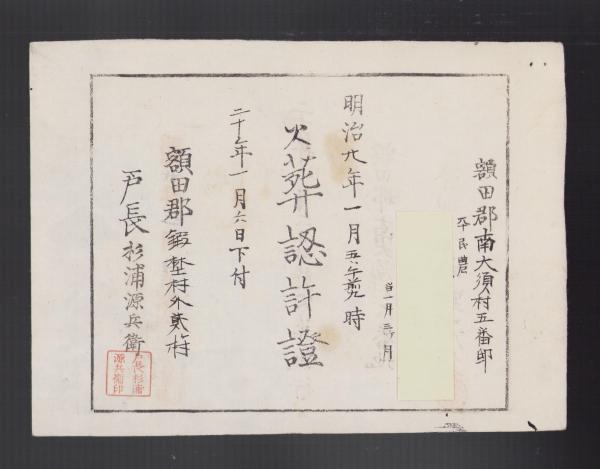 額田郡南大須村五番邸
平民農
当一月三ヶ月
明治九年一月五日午前九時
火葬認許證
二十年一月六日下付
額田郡鍛埜村外貳村
戸長杉浦源兵衛
戸長杉浦
源兵衛印